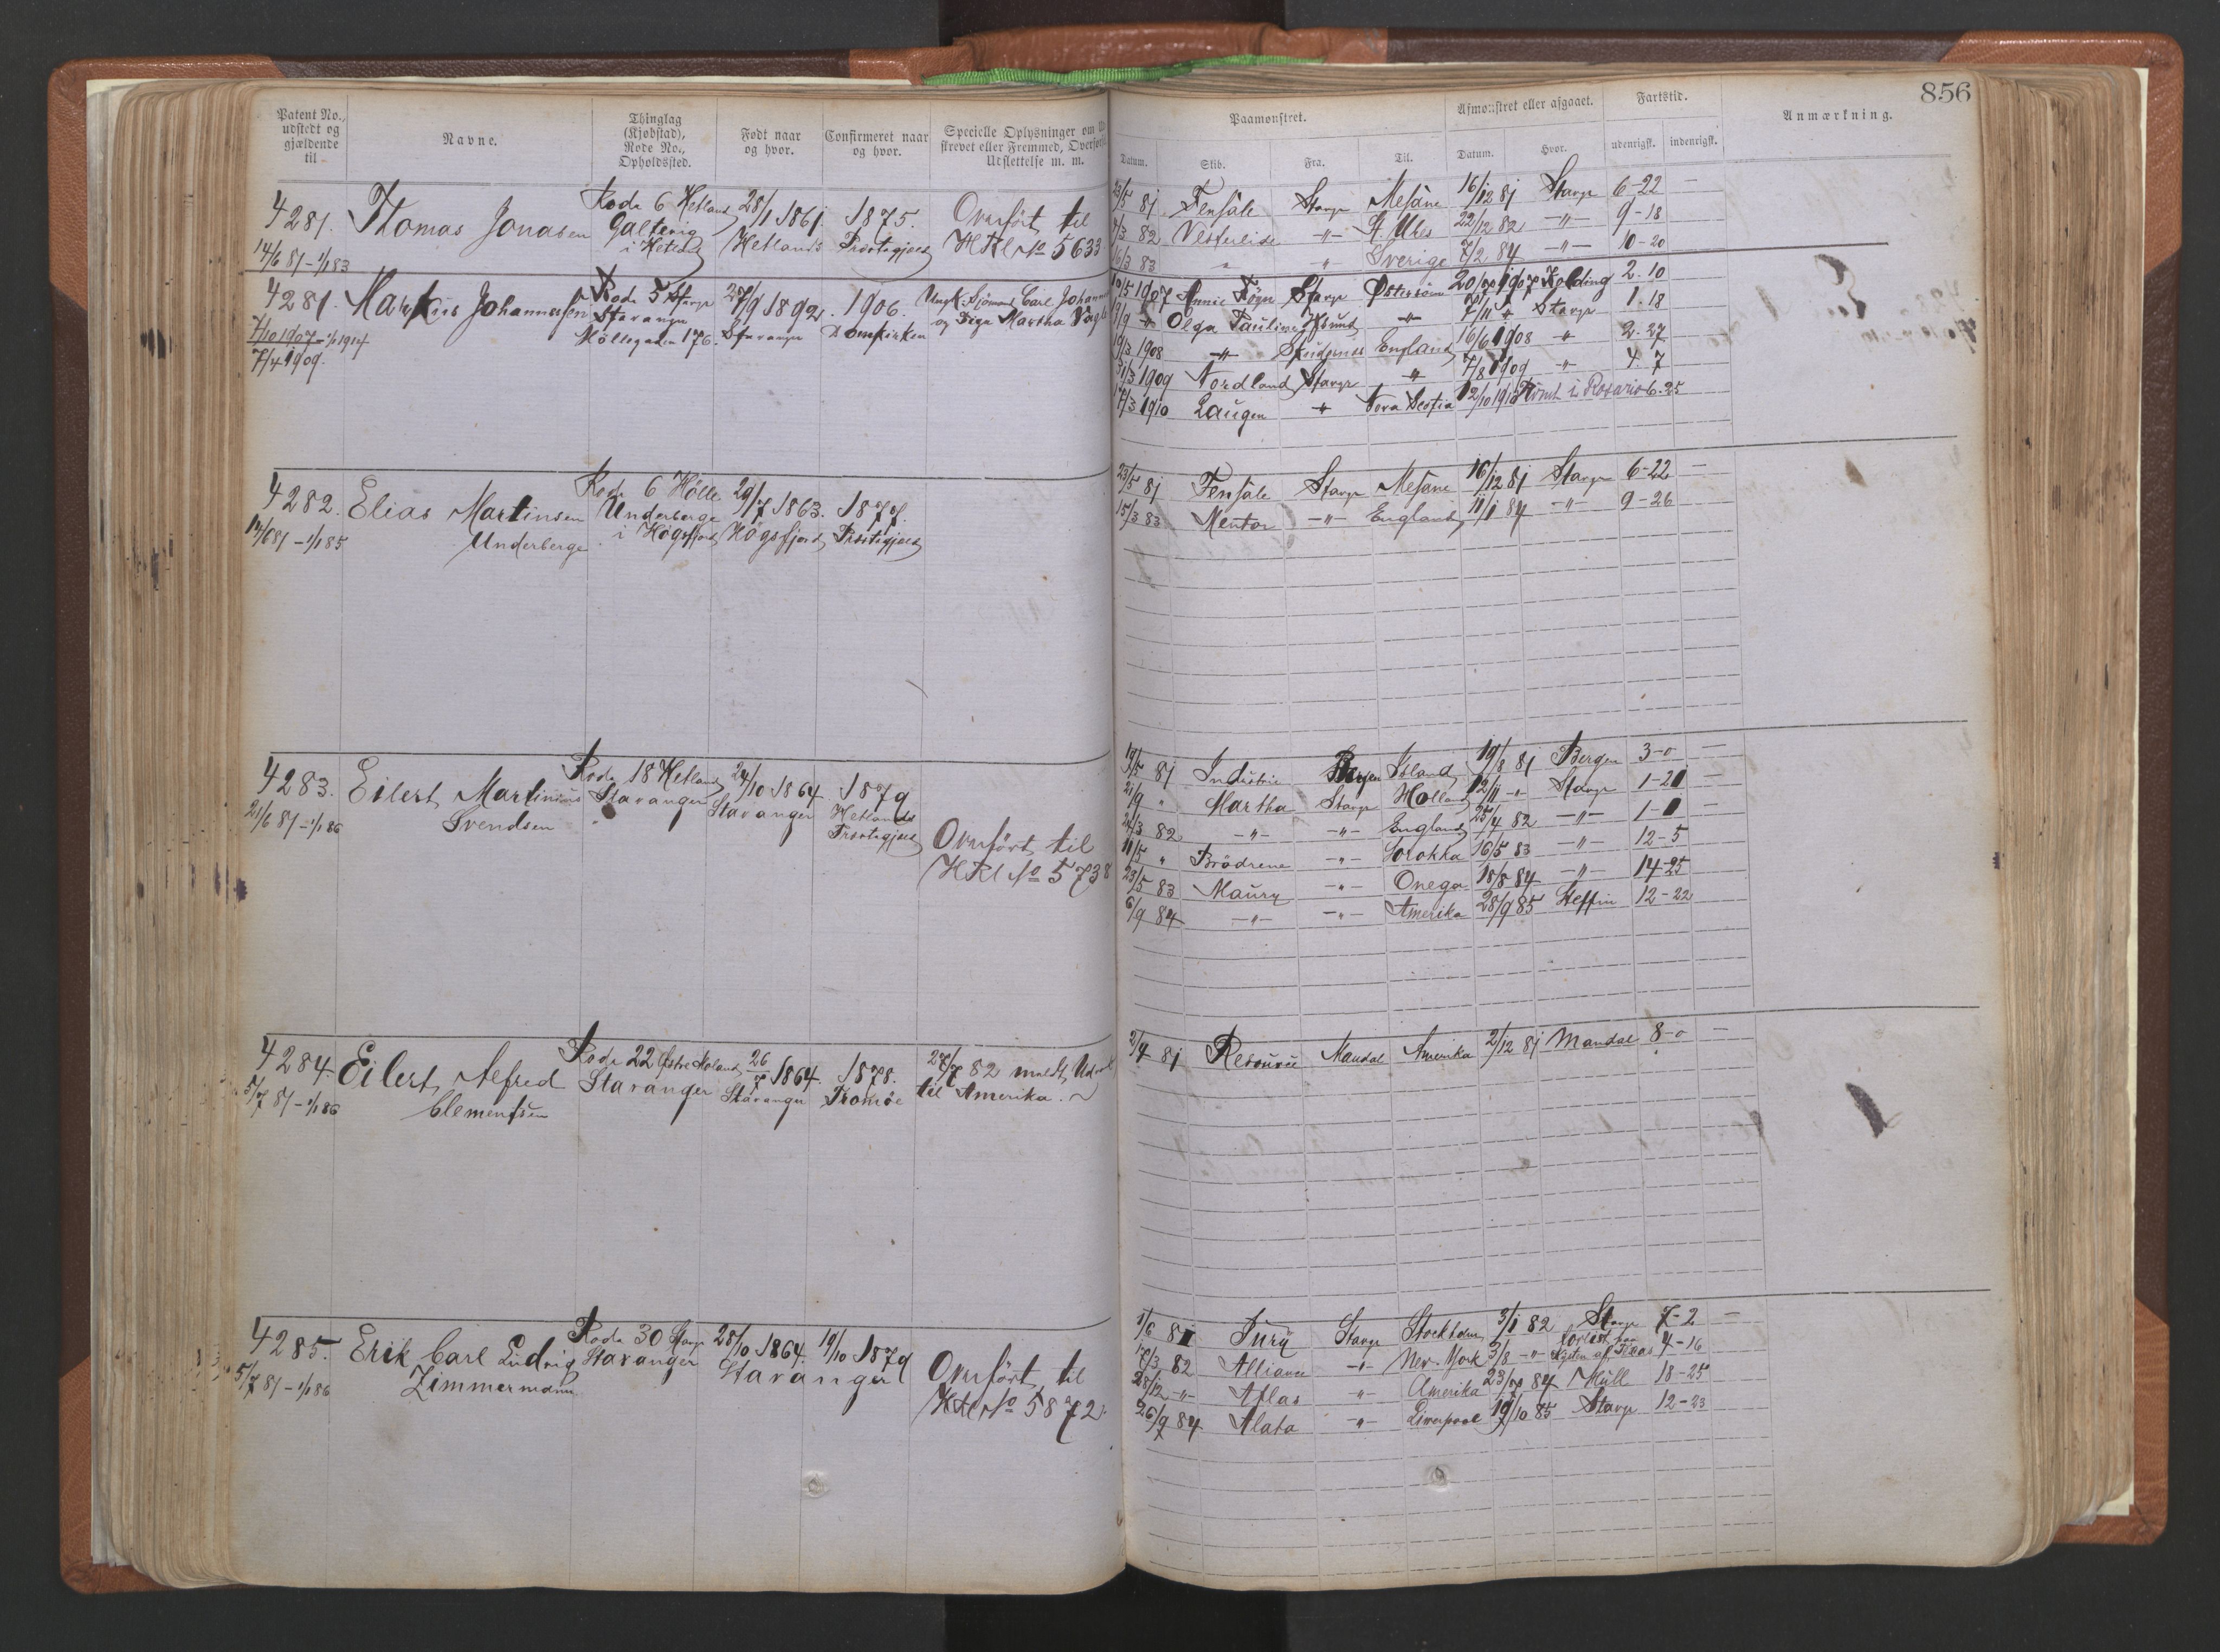 856
Patent No., udstedt og gjældende til
Navne.
Thinglag (Kjøbstad), Rode No., Opholdssted.
Født naar og hvor.
Confirmeret naar og hvor.
Specielle Oplysninger om
skrevet eller Fremmed,
Udslettelse m. m.
Paamønstret.
Afmønstret eller afgaaet.
Fartstid.
Anmærkning.
Datum.
Skib.
Fra.
Til.
Datum.
Hvor.
udenrigsk.
indenrigsk.
4281. Thomas Jonasen Rode 6 Hetland 28/1 1861. 1875. Overført til
14/6 81 - 1/1 83 i Hetland Hetlands Provstigjeld HRl No 5633
23/5 81 Stavgr 16/12 81 Stavgr 6-22 —
82 -"- 22/12 82 -"- 9-18
16/3 83 " " Sverige 7/2 84 -"- 10-20
4281. Markus Johannessen Rode 5 Stavgr 27/9 1892. 1906. Carl
7/10 1907 - 1/1 1914 Stavanger Stavanger Domkirken og Pige Martha
7/4 1909. Möllegaden 176.
1907 Annie Stavgr Østersøen 1907 Kolding 2. 10
Olga Pauline 7/11 " Stavgr 1. 18
19/3 1908 -"- Skudesnes England 16/6 1908 " 2. 27
31/3 1909 Nordland Stavgr " 7/8 1909 " 4. 7
17/3 1910 Laugen " Nova Scotia 12/10 1910 Römt i Rosario 6. 25
4282. Elias Martinsen Rode 6 Hölle 29/7 1863. 1877.
14/6 81 - 1/1 85 Underberge Underberge i Högsfjord Högsfjord Provstigjeld
23/5 81 Stavgr 16/12 81 Stavgr 6-22 —
15/3 83 Mentor -"- England 11/1 84 -"- 9-26
4283. Eilert Martinius Rode 18 Hetland 24/10 1864 1879
21/6 81 - 1/1 86 Svendsen Stavanger Stavanger Hetlands Provstigjeld
Overført til
HRl No 5738
19/5 81 Industrie Bergen Island 19/8 81 Bergen 3-0 —
21/9 " Martha Stavgr Holland 12/11 -"- Stavgr 1-21 —
24/3 82 -"- -"- England 25/4 82 -"- 1-1 —
11/5 " Brödrene -"- Sorokka 16/5 83 -"- 12-5
23/5 83 Maury -"- Onega 18/8 84 -"- 14-25
6/9 84 -"- -"- Amerika 28/9 85 Stettin 12-22
4284. Eilert Alfred Rode 22 Stavanger 26/7 1864. 1878. 27/7 82 meldt
5/7 81 - 1/1 86 Clementsen Stavanger Tromöe til Amerika.
2/4 81 Resource Mandal Amerika 2/12 81 Mandal 8-0 —
4285. Erik Carl Ludvig Rode 30 Stavgr 28/10 1864. 19/10 1879 Overført til
5/7 81 - 1/1 86 Zimmermann Stavanger Stavanger HRl No 5872.
1/6 81 Jury Stavgr Stockholm 3/1 82 Stavgr 7-2 —
17/3 82 Alliance -"- New-York 3/8 -"- Forlist paa Kysten af Texas 4-16
28/12 -"- Atlas " Amerika 23/7 84 Hull 18-25
26/9 84 Alata -"- Liverpool 19/10 85 Stavgr 12-23